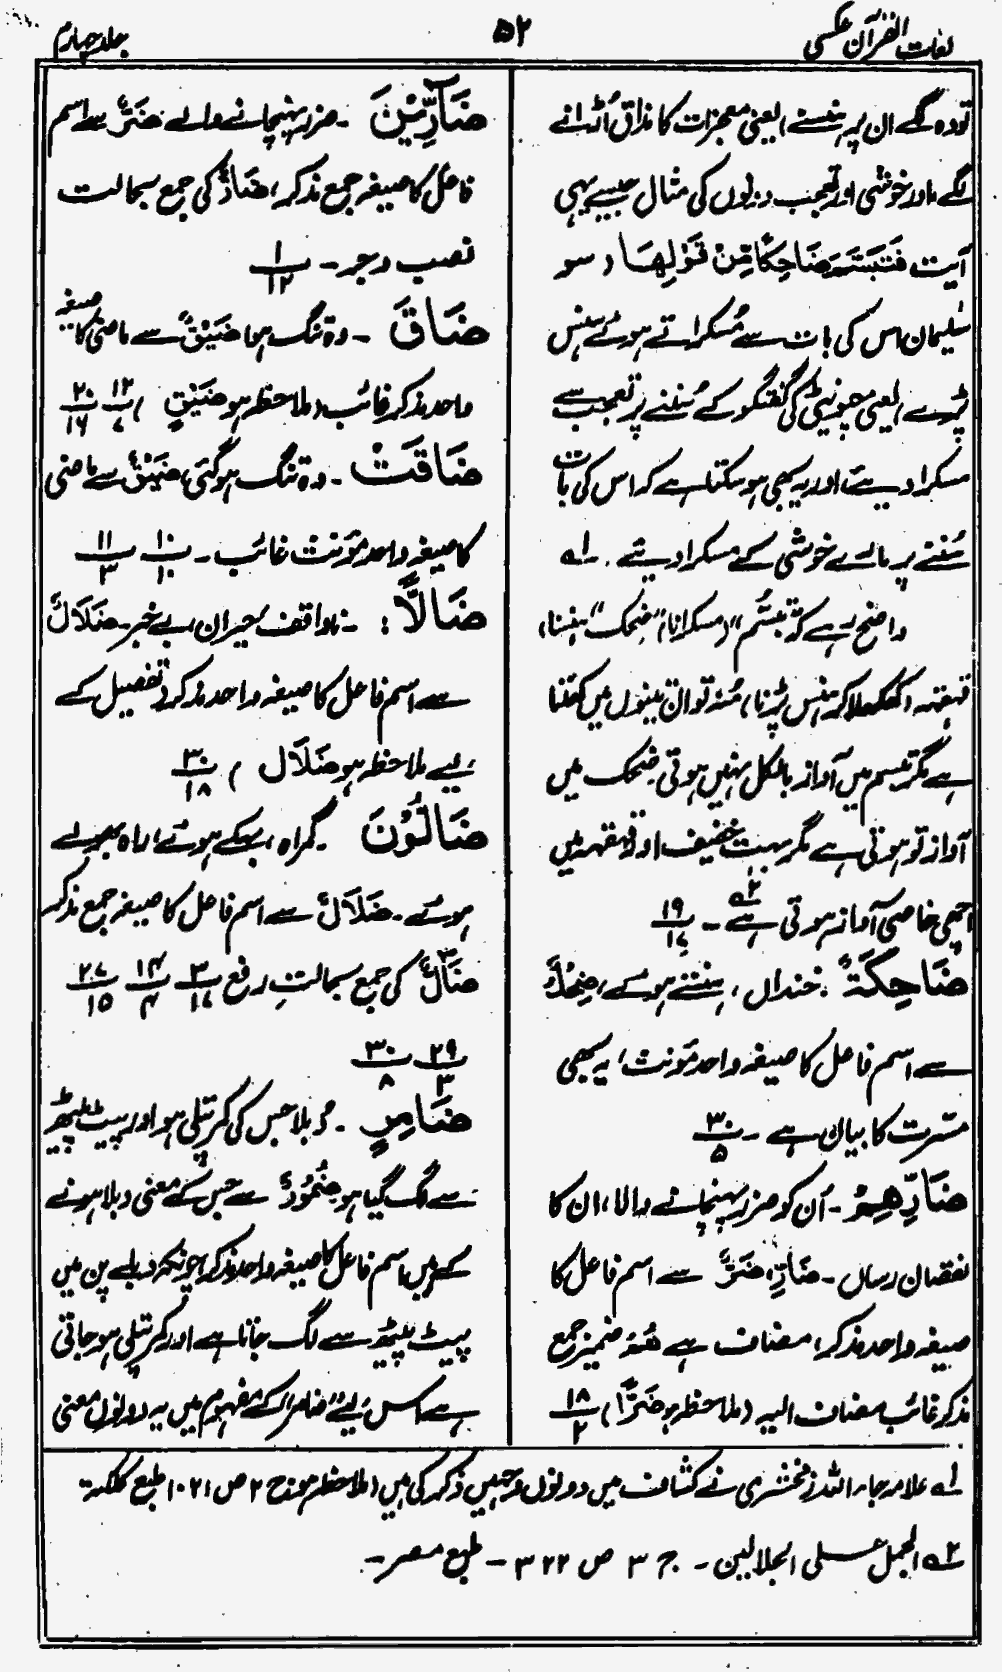 لغات القرآن عکسی
۵۲
جلد چہارم
تو وہ لگے ان پر ہنسنے، یعنی معجزات کا مذاق اُڑانے
لگے، اور خوشی اور تعجب دونوں کی مثال جیسے یہی
آیت فَتَبَسَّمَ ضَاحِكًا مِّنْ قَوْلِهَا (سو
سُلیمان اس کی بات سے مُسکراتے ہوئے ہنس
پڑے) یعنی چیونٹی کی گفتگو کے سُننے پر تعجب سے
مسکرا دیئے، اور یہ بھی ہو سکتا ہے کہ اس کی بات
سُننے پر مارے خوشی کے مسکرا دیئے۔ ۱ھ
واضح رہے کہ تبسُّم" (مسکرانا) "ضِحک" (ہنسنا)
قہقہہ (کھکھلا کر ہنس پڑنا)، مُنہ تو ان تینوں میں کھُلتا
ہے مگر تبسم میں آواز بالکل نہیں ہوتی ضِحک میں
آواز تو ہوتی ہے مگر بہت خفیف اور قہقہہ میں
اچھی خاصی آواز ہوتی ہے ۲ھ۔ ۱۹/۱۷
ضَاحِكَةٌ : خنداں، ہنستے ہوئے، ضِحْكٌ
سے اسم فاعل کا صیغہ واحد مؤنث، یہ بھی
مسّرت کا بیان ہے ۔ ۳۰/۵
ضَارِّهِمْ ۔ اُن کو ضرر پہنچانے والا، ان کا
نقصان رساں ۔ ضَارِّ، ضَرٌّ سے اسم فاعل کا
صیغہ واحد مذکر، مضاف ہے هُمْ ضمیر جمع
مذکر غائب مضاف الیہ (ملاحظہ ہو ضَرًّا) ۱۸/۲
ضَآرِّيْنَ ۔ ضرر پہنچانے والے ضَرٌّ سے اسم
فاعل کا صیغہ جمع مذکر، ضَارٌّ کی جمع بحالت
نصب و جر ۔ ۱/۱۲
ضَاقَ ۔ وہ تنگ ہوا ضَيْقٌ سے ماضی کا صیغہ
واحد مذکر غائب (ملاحظہ ہو ضَيْقٍ) ۱۲/۷ ۲۰/۱۶
ضَاقَتْ ۔ وہ تنگ ہو گئی، ضَيْقٌ سے ماضی
کا صیغہ واحد مؤنث غائب ۔ ۱۰/۱۰ ۱۱/۳
ضَالًّا : ۔ ناواقف، حیران، بے خبر ۔ ضَلَالٌ
سے اسم فاعل کا صیغہ واحد مذکر (تفصیل کے
لیے ملاحظہ ہو ضَلَال) ۳۰/۱۸
ضَالُّوْنَ ۔ گمراہ، بہکے ہوئے، راہ بھولے
ہوئے ۔ ضَلَالٌ سے اسم فاعل کا صیغہ جمع مذکر
ضَالٌّ کی جمع بحالتِ رفع ۳/۱۷ ۱۴/۴ ۲۷/۱۵
۲۹/۳ ۳۰/۸
ضَامِرٍ ۔ دُبلا جس کی کمر پتلی ہو اور پیٹ پیٹھ
سے لگ گیا ہو ضُمُوْرٌ سے جس کے معنی دبلا ہونے
کے ہیں، اسم فاعل کا صیغہ واحد مذکر، چونکہ دبلے پن میں
پیٹ پیٹھ سے لگ جاتا ہے اور کمر پتلی ہو جاتی
ہے اس لیے "ضامر" کے مفہوم میں یہ دونوں معنی
۱ھ علامہ جار اللہ زمخشری نے کشاف میں دونوں وجہیں ذکر کی ہیں (ملاحظہ ہو ج ۲ ص ۱۰۲۱ طبع کلکتہ
۲ھ الجمل علی الجلالین ۔ ج ۳ ص ۳۲۲ ۔ طبع مصر ۔